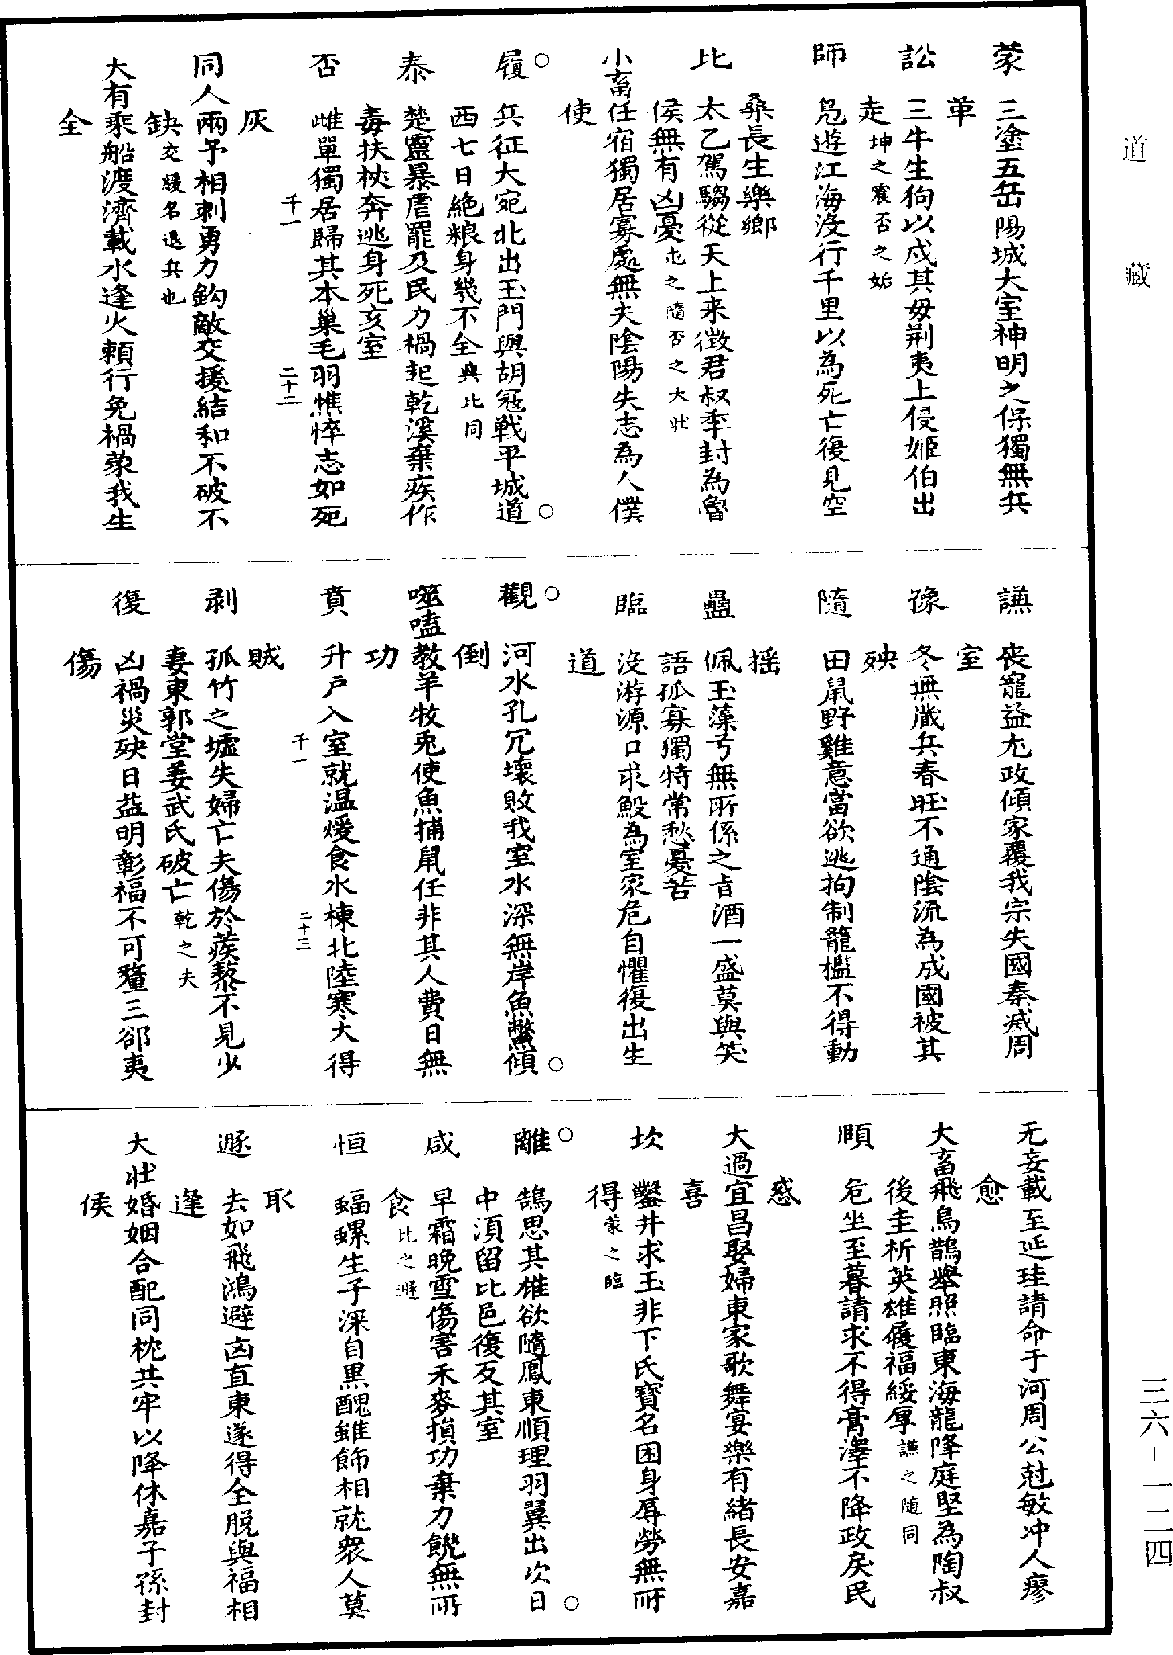 道藏
蒙　三塗五岳陽城大室神明之保獨無兵
革
訟　三牛生狗以戍其母荆夷上侵姬伯出
走坤之震否之姤
師　鳧遊江海沒行千里以為死亡復見空
桑長生樂鄉
比　太乙駕騶從天上来徵君叔季封為魯
侯無有凶憂屯之隨否之大壯
小畜任宿獨居寡處無夫陰陽失志為人僕
使
履　兵征大宛北出玉門與胡寇戰平城道
西七日絕粮身幾不全與比同
泰　楚靈暴虐罷及民力禍起乾溪棄疾作
毒扶杖奔逃身死亥室
否　雌單獨居歸其本巢毛羽憔悴志如死
灰
同人兩予相刺勇力鈞敵交援結和不破不
缺交緩名退兵也
大有乘船渡濟載水逢火賴行免禍蒙我生
全
千一
二十二
謙　喪寵益尤政傾家覆我宗失國秦滅周
室
豫　冬無藏兵春旺不通陰流為成國被其
殃
隨　田鼠野雞意當欲逃拘制籠檻不得動
搖
蠱　佩玉藻兮無所係之旨酒一盛莫與笑
語孤寡獨特常愁憂苦
臨　沒游源口求鮫為室家危自懼復出生
道
觀　河水孔冗壞敗我室水深無岸魚鱉傾
倒
噬嗑教羊牧兎使魚捕鼠任非其人費日無
功
賁　升戶入室就温煖食水棟北陸寒大得
賊
剥　孤竹之墟失婦亡夫傷於蒺藜不見少
妻東郭堂姜武氏破亡乾之夬
復　凶禍災殃日益明彰福不可釐三郤夷
傷
千一
二十三
无妄載至延珪請命于河周公尅敏冲人瘳
愈
大畜飛鳥鵲舉照臨東海龍降庭堅為陶叔
後圭析英雄履福綏厚謙之隨同
順　危坐至暮請求不得膏澤不降政戾民
惑
大過宜昌娶婦東家歌舞宴樂有緒長安嘉
喜
坎　鑿井求玉非下氏寶名困身辱勞無所
得蒙之臨
離　鵠思其雄欲隨鳳東順理羽翼出次日
中湏留比邑復反其室
咸　早霜晚雪傷害禾麥損功棄力饑無所
食比之遯
恒　蝠螺生子深目黒醜雖飾相就衆人莫
取
遯　去如飛鴻避凶直東遂得全脫與福相
逢
大壯婚姻合配同枕共牢以降休嘉子孫封
侯
三六-一二四